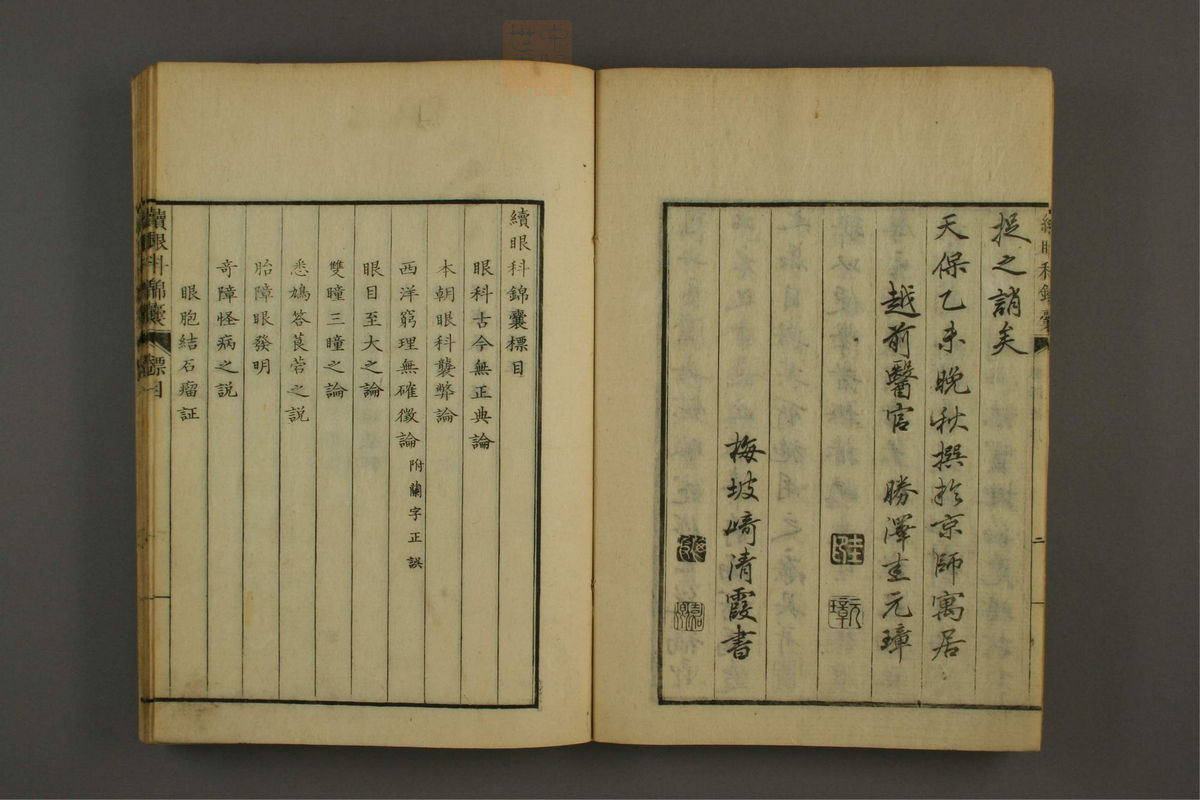 捉之誚矣
天保乙未晚秋撰於京師寓居
越前醫官 勝澤圭元璋
圭
元璋
梅坡﨑清霞書
二
續眼科錦囊標目
眼科古今無正典論
本朝眼科襲弊論
西洋窮理無確徵論 附蘭字正誤
眼目至大之論
雙瞳三瞳之論
悉鳩答莨菪之説
胎障眼發明
奇障怪病之説
眼胞結石瘤証
續眼科錦囊 標目